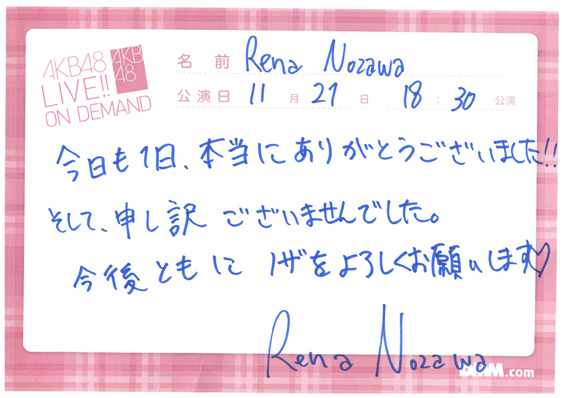 AKB48
LIVE!!
ON DEMAND
AKB
48
名前 Rena Nozawa
公演日 11月21日 18:30 公演
今日も1日、本当にありがとうございました!!
そして、申し訳ございませんでした。
今後ともにノザをよろしくお願いします♡
Rena Nozawa
DMM.com